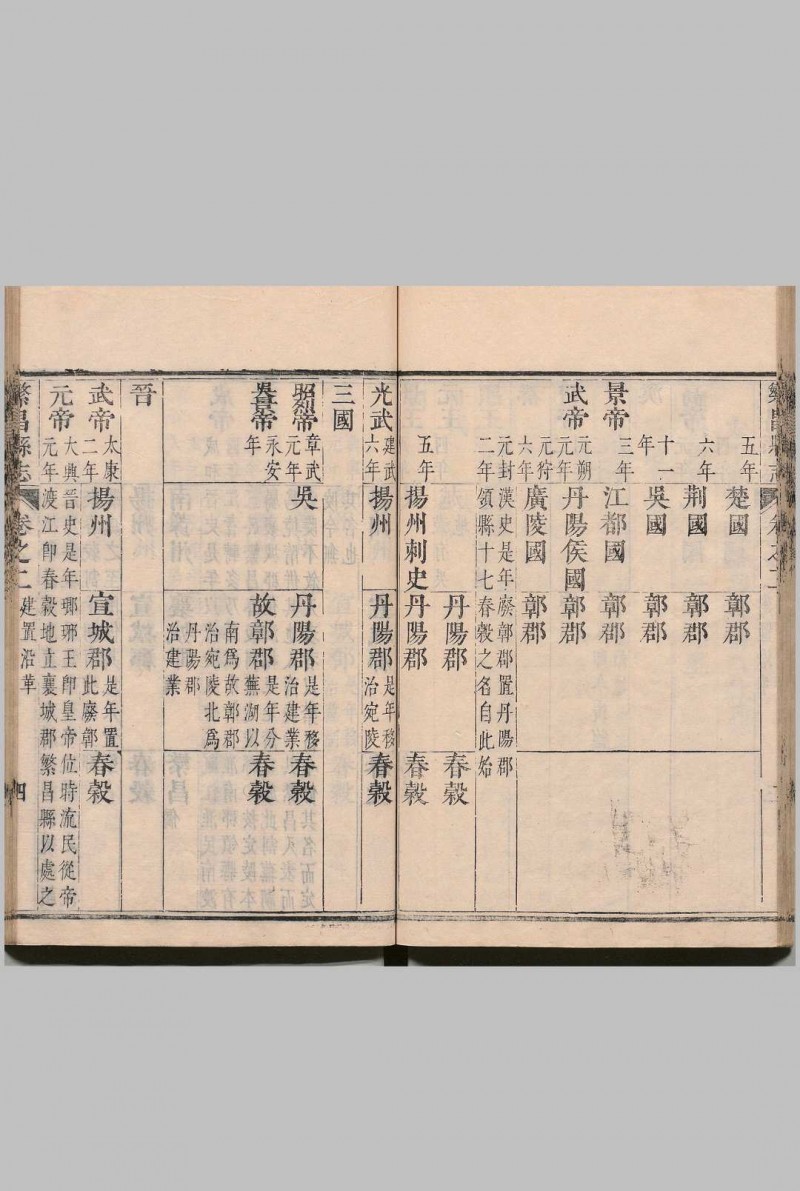 五年 楚國 鄣郡
六年 荆國 鄣郡
十一年 吳國 鄣郡
景帝 三年 江都國 鄣郡
武帝 元朔元年 丹陽侯國 鄣郡
元狩六年 廣陵國 鄣郡
元封二年 漢史是年廢鄣郡置丹陽郡領縣十七春榖之名自此始
丹陽郡 春榖
五年 揚州刺史 丹陽郡 春榖
光武 建武六年 揚州 丹陽郡 是年移治宛陵 春榖
三國
昭烈帝 章武元年 吳 丹陽郡 是年移治建業 春榖
後帝 永安年 故鄣郡 是年分蕪湖以南爲故鄣郡治宛陵北爲丹陽郡治建業 春榖
晉
武帝 太康二年 揚州 宣城郡 是年置此廢鄣 春榖
元帝 大興元年 晉史是年瑯琊王卽皇帝位時流民從帝渡江卽春榖地立襄城郡繁昌縣以處之
繁昌縣志 卷之二 建置沿革 四